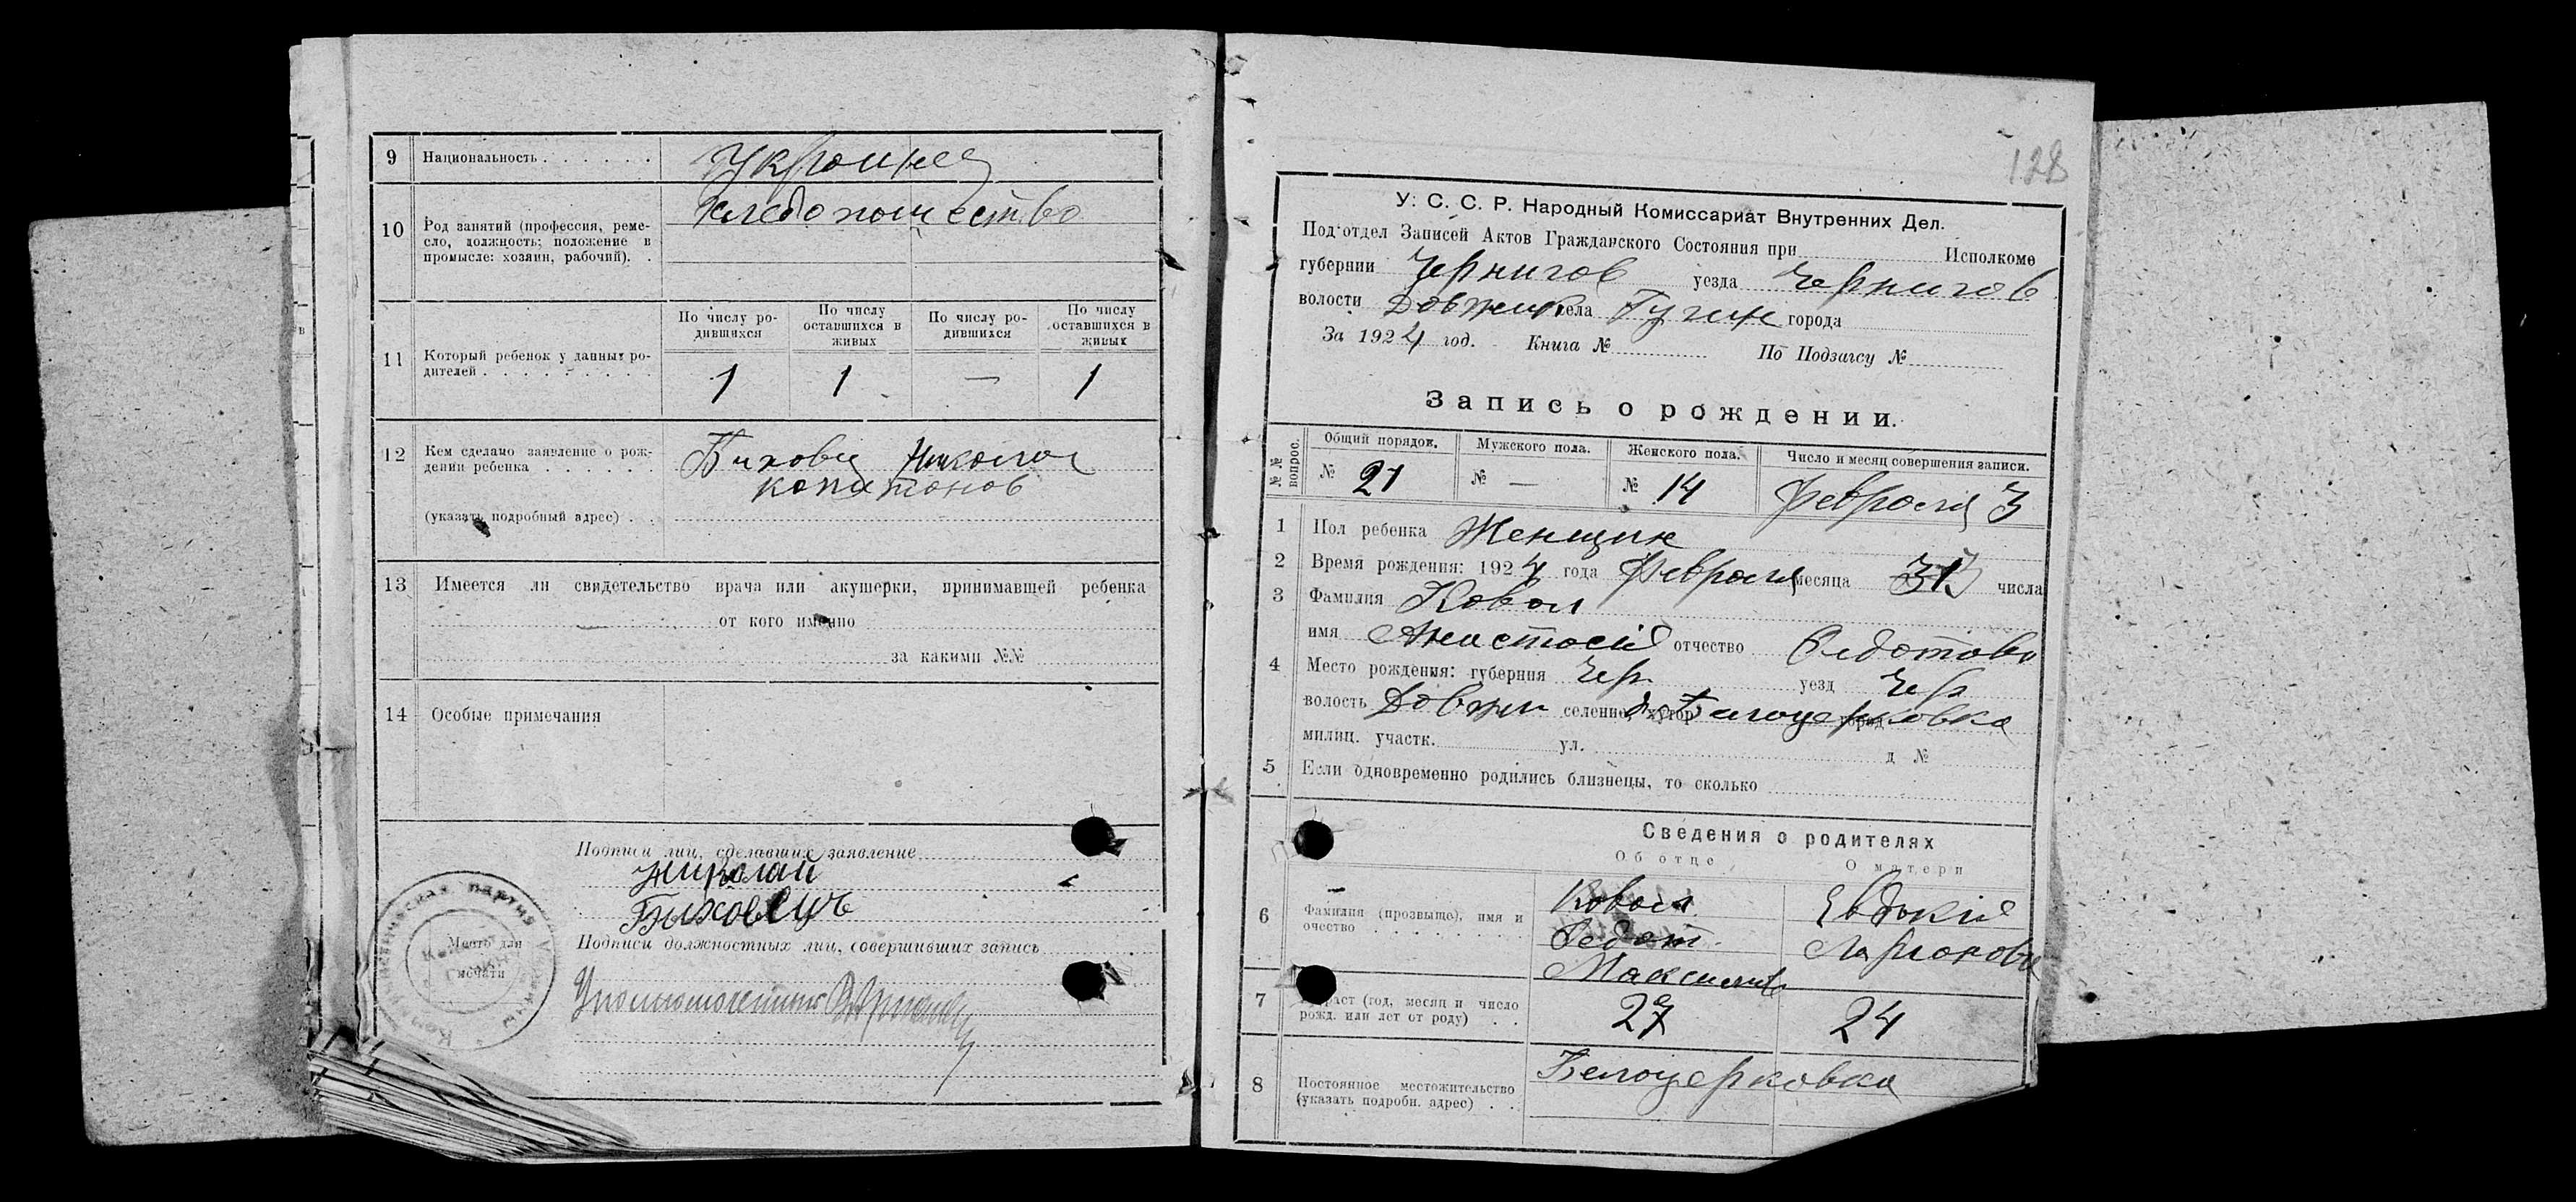 9 Национальность . . . . . . Украинец
10 Род занятий (профессия, реме-
сло, должность; положение в
промысле: хозяин, рабочий). .
Хлебопашество
11 Который ребенок у данных ро-
дителей . . . . . . . . . .
По числу ро-
дившихся
По числу
оставшихся в
живых
По числу ро-
дившихся
По числу
оставшихся в
живых
1 1 — 1
12 Кем сделано заявление о рож-
дении ребенка . . . . . .
(указать подробный адрес) . .
Биховец Николай
Капитонов
13 Имеется ли свидетельство врача или акушерки, принимавшей ребенка
— от кого именно
за какими №№
14 Особые примечания
Подписи лиц, сделавших заявление
Николай
Биховецъ
Подписи должностных лиц, совершивших запись
Место для
печати
Уполномоченный
128
У. С. С. Р. Народный Комиссариат Внутренних Дел.
Подотдел Записей Актов Гражданского Состояния при Исполкоме
губернии Чернигов уезда Чернигов
волости Довжик села Гучин города
За 1924 год. Книга № По Подзагсу №
Запись о рождении.
№№ вопрос.
Общий порядок. Мужского пола. Женского пола. Число и месяц совершения записи.
№ 21 № — № 14 Февраля 3
1 Пол ребенка Женщин
2 Время рождения: 1924 года Февраля месяца 3 числа
3 Фамилия Ковал
имя Анастасія отчество Федотова
4 Место рождения: губерния Чер. уезд Чер
волость Довжи селение, хутор Билоцерковка город
милиц. участк. ул. д №
5 Если одновременно родились близнецы, то сколько
Сведения о родителях
Об отце О матери
6 Фамилия (прозвище), имя и
очество . . . . . . . .
Ковал
Федот
Максимов
Евдокія
Ларионова
7 Возраст (год, месяц и число
рожд. или лет от роду) . .
27 24
8 Постоянное местожительство
(указать подробн. адрес) . .
Белоцерковка